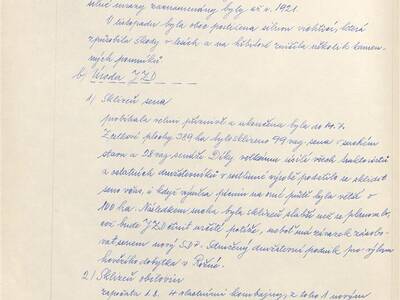 silné mrazy zaznamenány byly až v r. 1921.
V listopadu byla obec postižena silnou vichřicí, která
způsobila škody v lesích a na hřbitově zničila několik kamen-
ných pomníků
b) Úroda JZD
1) Sklizeň sena
probíhala velmi příznivě a ukončena byla do 14.7.
Z celkové plochy 389 ha bylo sklizeno 99 vag. sena v suchém
stavu a 28 vag. senáže. Díky velkému úsilí všech traktoristů
a ostatních družstevníků v rostlinné výrobě podařilo se sklidit
seno včas, i když výměra pícnin na orné půdě byla větší o
100 ha. Následkem sucha byla sklizeň slabší než se plánovalo,
což bude JZD činit určité potíže, neboť má závazek zásobo-
vat senem nový SDP. Sdružený družstevní podnik pro výkrm
hovězího dobytka v
2) Sklizeň obilovin
započala 1.8. 4 vlastními kombajny, z toho 1 novým